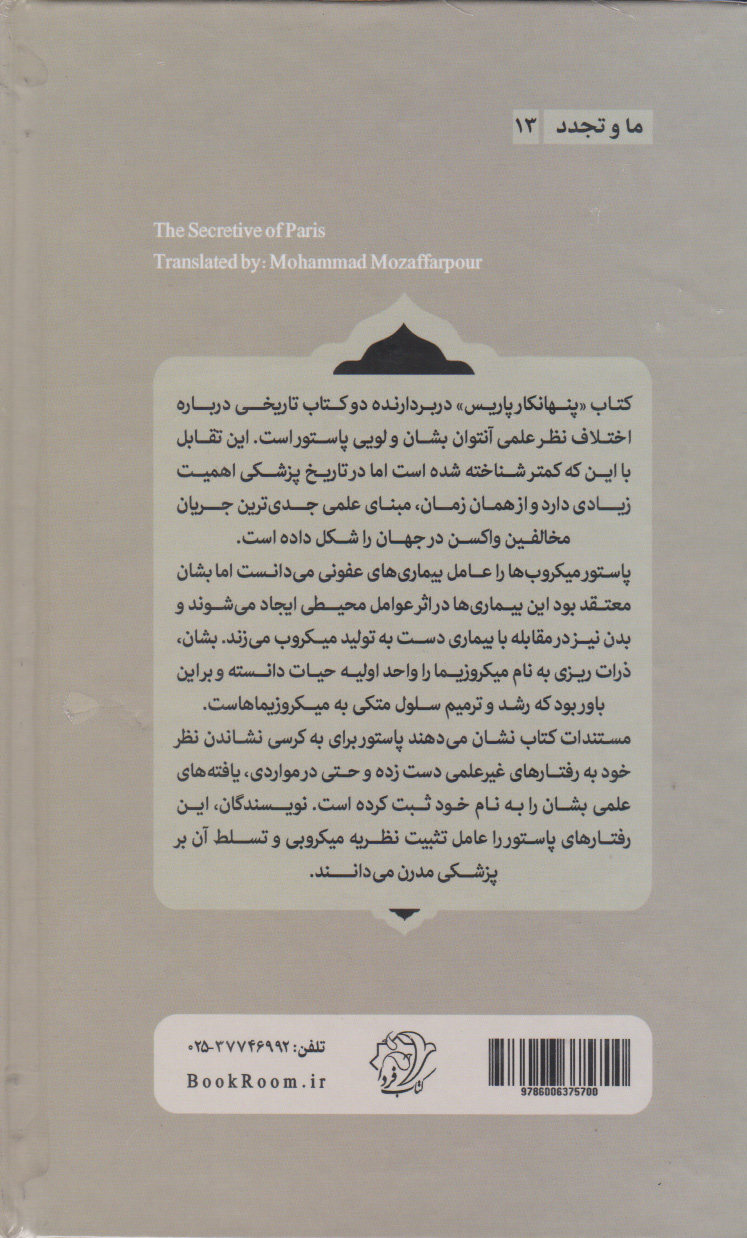 ما و تجدد ۱۳
The Secretive of Paris
Translated by: Mohammad Mozaffarpour
کتاب «پنهانکار پاریس» دربردارنده دو کتاب تاریخی درباره
اختلاف نظر علمی آنتوان بشان و لویی پاستور است. این تقابل
با این که کمتر شناخته شده است اما در تاریخ پزشکی اهمیت
زیادی دارد و از همان زمان، مبنای علمی جدی‌ترین جریان
مخالفین واکسن در جهان را شکل داده است.
پاستور میکروب‌ها را عامل بیماری‌های عفونی می‌دانست اما بشان
معتقد بود این بیماری‌ها در اثر عوامل محیطی ایجاد می‌شوند و
بدن نیز در مقابله با بیماری دست به تولید میکروب می‌زند. بشان،
ذرات ریزی به نام میکروزیما را واحد اولیه حیات دانسته و بر این
باور بود که رشد و ترمیم سلول متکی به میکروزیماهاست.
مستندات کتاب نشان می‌دهند پاستور برای به کرسی نشاندن نظر
خود به رفتارهای غیرعلمی دست زده و حتی در مواردی، یافته‌های
علمی بشان را به نام خود ثبت کرده است. نویسندگان، این
رفتارهای پاستور را عامل تثبیت نظریه میکروبی و تسلط آن بر
پزشکی مدرن می‌دانند.
تلفن: ۰۲۵-۳۷۷۴۶۹۹۲
BookRoom.ir
کتاب فردا
9786006375700